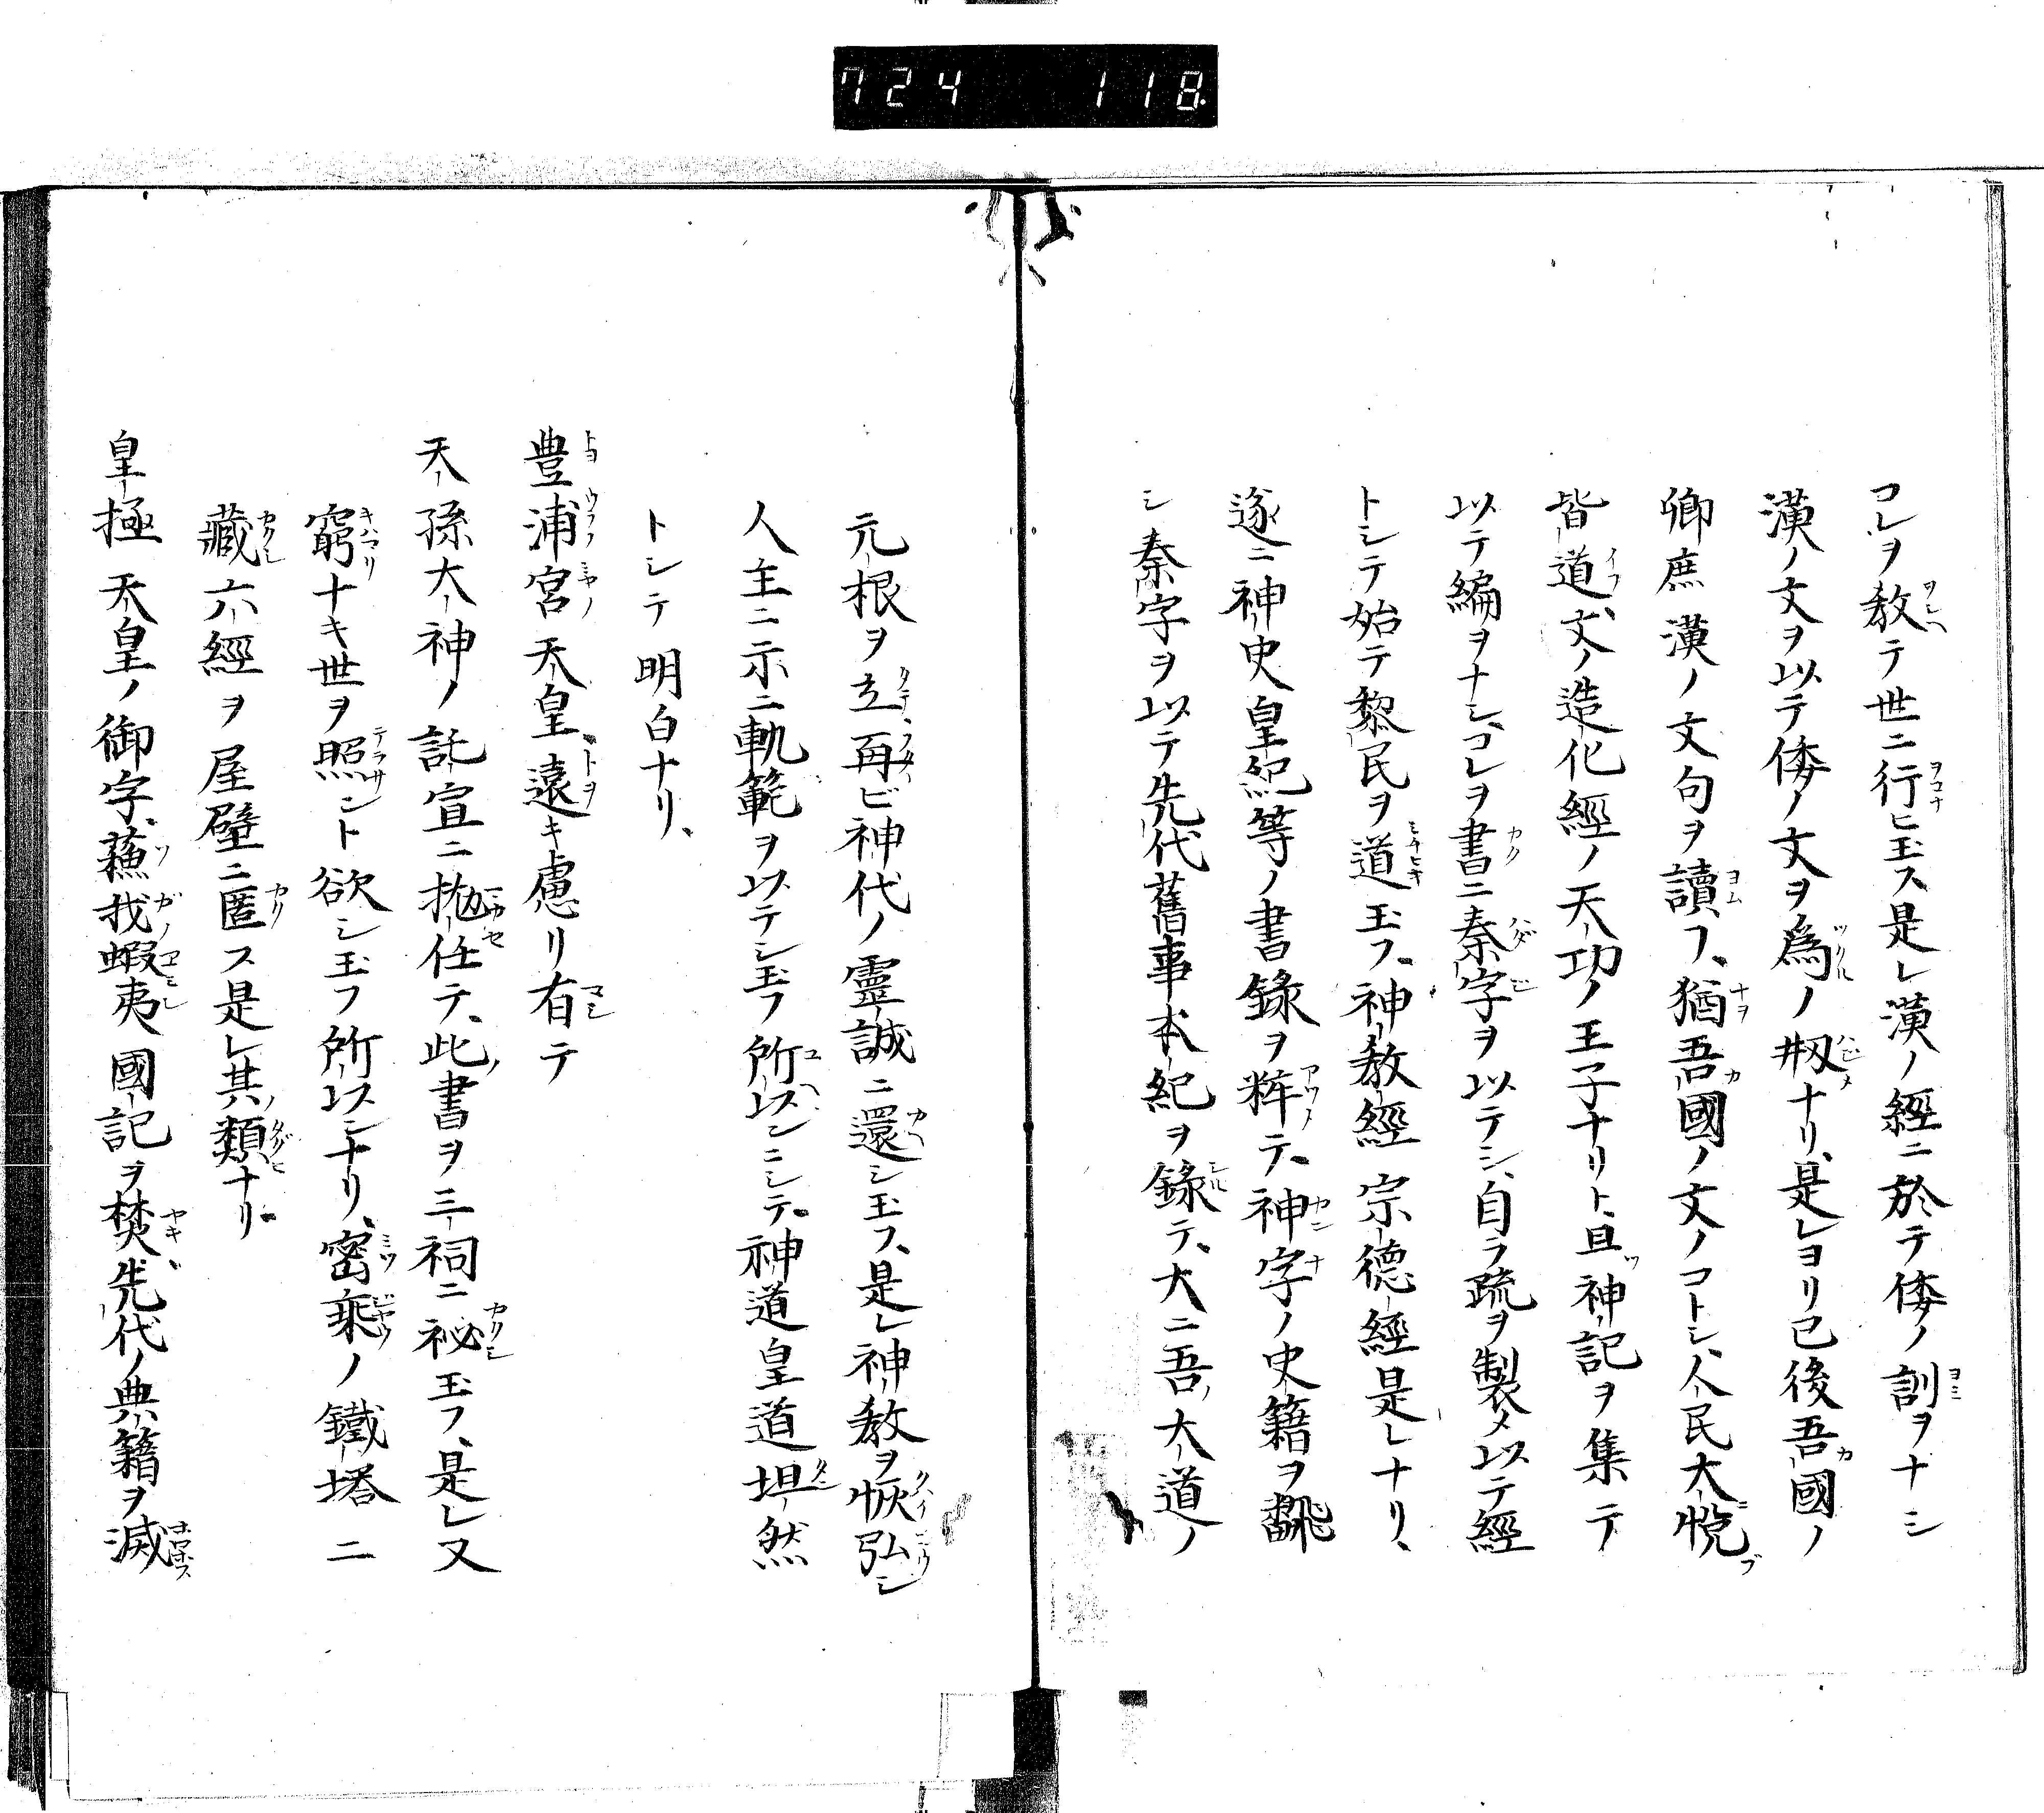 724 118
コレヲ敎テ世ニ行ヒ玉ス是レ漢ノ經ニ於テ倭ノ訓ヲナシ
漢ノ文ヲ以テ倭ノ文ヲ爲ノ刱ナリ、是レヨリ已後吾國ノ
卿庶漢ノ文句ヲ讀フ、猶吾國ノ文ノコトシ、人民大悅
皆道、文ノ造化經ノ天功ノ王子ナリト、且神記ヲ集テ
以テ編ヲナシ、コレヲ書ニ秦字ヲ以テシ、自ラ疏ヲ製メ以テ經
トシテ始テ黎民ヲ道玉フ、神敎經宗德經是レナリ、
遂ニ神史皇紀等ノ書錄ヲ粹テ、神字ノ史籍ヲ飜
シ秦字ヲ以テ先代舊事本紀ヲ錄テ、大ニ吾大道ノ
元根ヲ立、再ビ神代ノ靈誠ニ還シ玉ス、是レ神敎ヲ恢弘シ
人主ニ示ニ軌範ヲ以テシ玉フ所以ンニシテ、神道皇道坦然
トシテ明白ナリ、
豊浦宮天皇、遠キ慮リ有テ
天孫大神ノ託宣ニ抛任テ、此書ヲ三祠ニ祕玉フ、是レ又
窮ナキ世ヲ照ント欲シ玉フ所以ンナリ、密乘ノ鐵塔ニ
藏六經ヲ屋壁ニ匿ス是レ其類ナリ
皇極天皇ノ御宇、蘓我蝦夷國記ヲ焚、先代ノ典籍ヲ滅